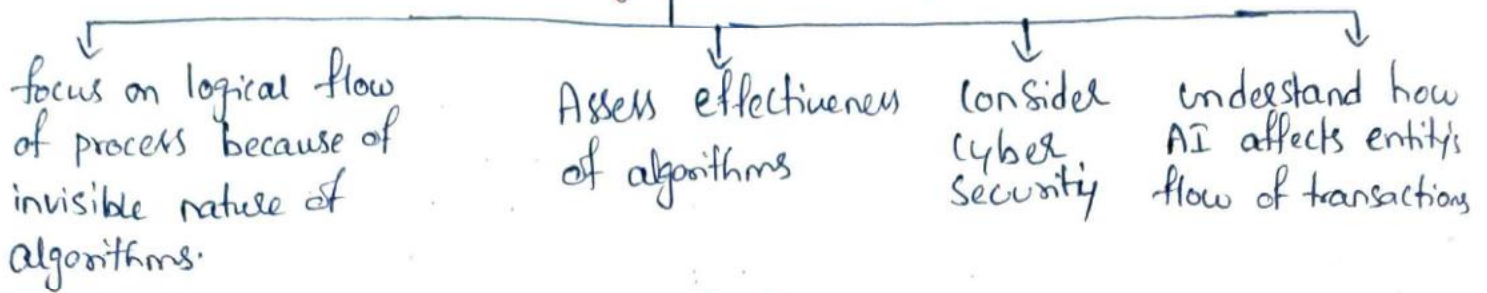 focus on logical flow
of process because of
invisible nature of
algorithms.
Assess effectiveness
of algorithms
Consider
Cyber
Security
understand how
AI affects entity's
flow of transactions